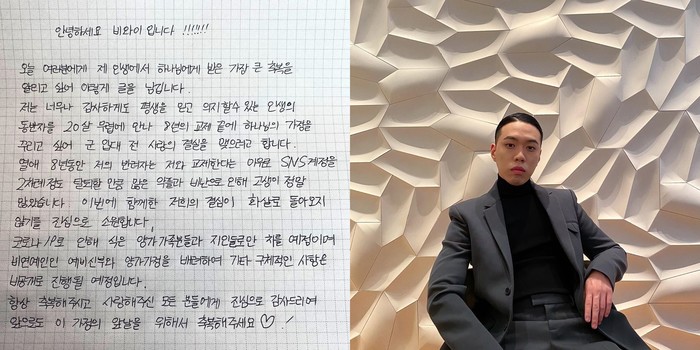 안녕하세요 비와이 입니다 !!!!!!!
오늘 여러분에게 제 인생에서 하나님에게 받은 가장 큰 축복을
알리고 싶어 이렇게 글을 남깁니다.
저는 너무나 감사하게도 평생을 믿고 의지할수 있는 인생의
동반자를 20살 무렵에 만나 8년의 교제 끝에 하나님의 가정을
꾸리고 싶어 군 입대 전 사랑의 결실을 맺으려고 합니다.
연애 8년동안 저의 반려자는 저와 교제한다는 이유로 SNS계정을
2차례정도 탈퇴할 만큼 많은 악플과 비난으로 인해 고생이 정말
많았습니다. 이번에 함께한 저희의 결심이 화살로 돌아오지
않기를 진심으로 소원합니다.
코로나19로 인해 식은 양가 가족분들과 지인들로만 치룰 예정이며
비연예인인 예비신부와 양가가정을 배려하여 기타 구체적인 사항은
비공개로 진행될 예정입니다.
항상 축복해주시고 사랑해주신 모든 분들에게 진심으로 감사드리며
앞으로도 이 가정의 앞날을 위해서 축복해주세요 ♡ !